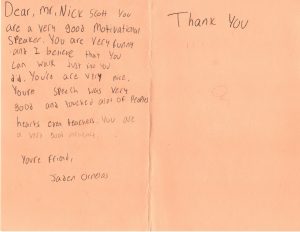 Dear, Mr, Nick Scott You
are a very good Motivational
Speaker. You are very funny
and I believe that you
can walk just like you
did. You're are very nice.
Youre speech was very
good and touched alot of Peoples
hearts even teachers. You are
a very good
Youre Friend,
Jaden Ornelas
Thank You